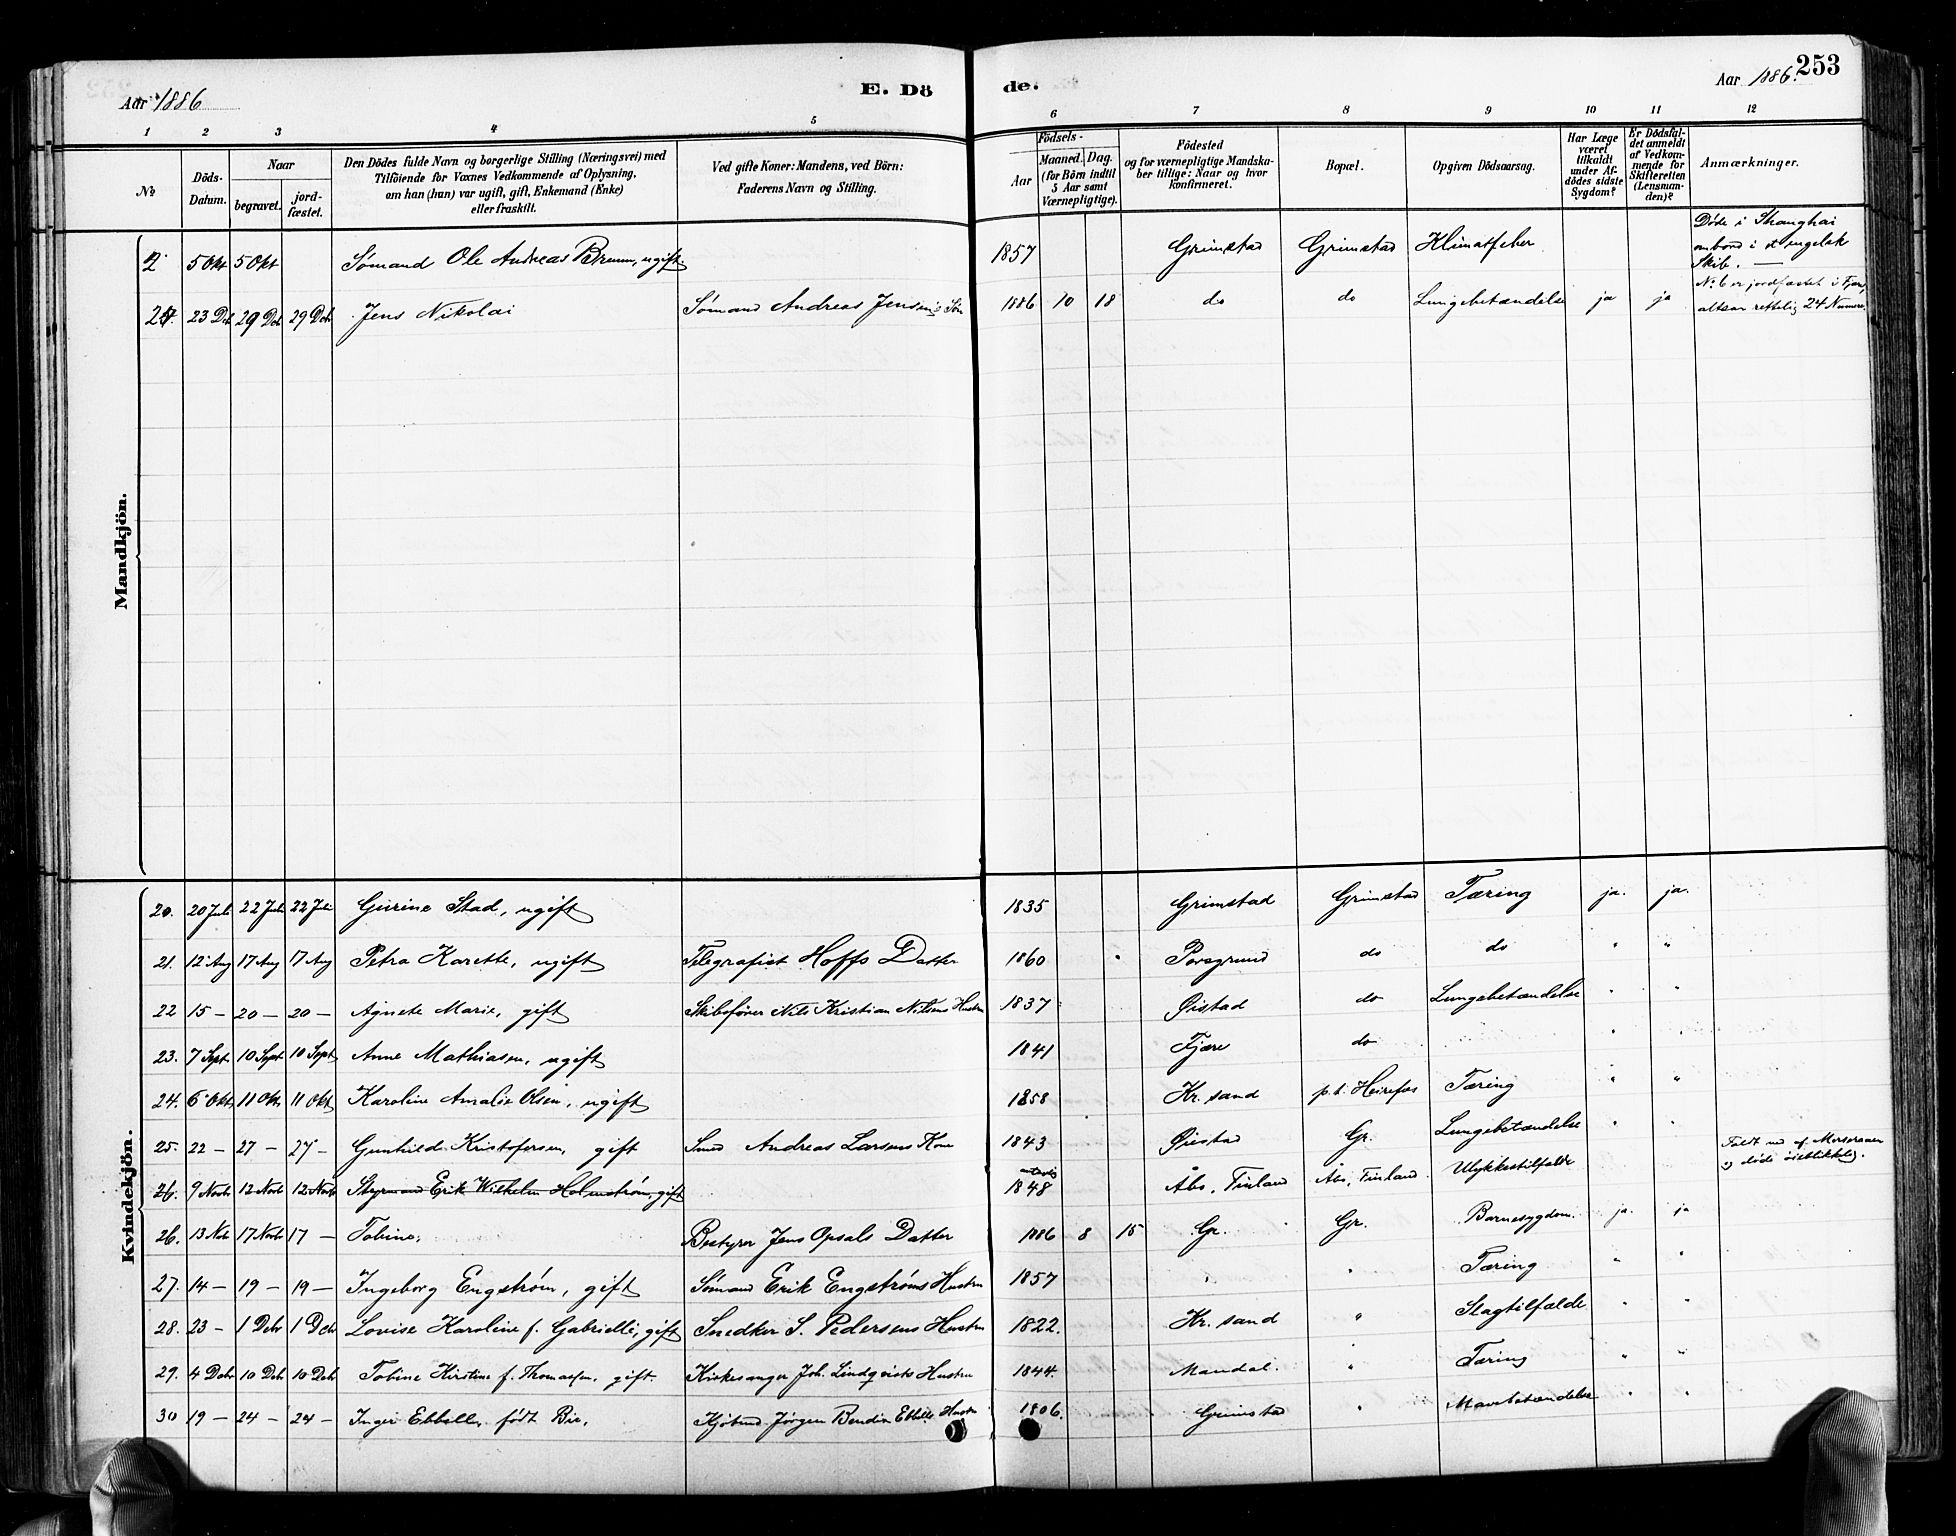 Aar 1886
E. Dö
de.
Aar 1886.
253
1 2 3 4 5 6 7 8 9 10 11 12
No
Döds-Datum.
Naar
begravet.
jord-fæstet.
Den Dödes fulde Navn og borgerlige Stilling (Næringsvei) med
Tilföiende for Voxnes Vedkommende af Oplysning,
om han (hun) var ugift, gift, Enkemand (Enke)
eller fraskilt.
Ved gifte Koner: Mandens, ved Börn:
Faderens Navn og Stilling.
Födsels-
Aar
Maaned. Dag.
(for Börn indtil
5 Aar samt
Værnepligtige).
Födested
og for værnepligtige Mandska-
ber tillige: Naar og hvor
konfirmeret.
Bopæl.
Opgiven Dödsaarsag.
Har Læge
været
tilkaldt
under Af-
dödes sidste
Sygdom?
Er Dödsfal-
det anmeldt
af Vedkom-
mende for
Skifteretten
(Lensman-
den)?
Anmærkninger.
Mandkjön.
5 Okt 5 Okt Sømand Ole Andreas Bremm, ugift. 1857 Grimstad Grimstad Klimatfeber Døde i Shanghai
ombord i et engelsk
Skib. —
23 Dcb 29 Dcb 29 Dcb Jens Nikolai Sømand Andreas Jensens Søn 1886 10 18 do do Lungebetændelse ja ja No 6 er jordfæstet i Fjære,
altsaa rettelig 24 Numere.
Kvindekjön.
20. 20 Juli 22 Juli 22 Juli Gurine Stad, ugift 1835 Grimstad Grimstad Tæring ja. ja.
21. 12 Aug 17 Aug 17 Aug Petra Karette, ugift Telegrafist Hoffs Datter 1860 Porsgrund do do " "
22 15 – 20 – 20 – Agnete Marie, gift Skibsfører Nils Kristian Nilsens Hustru 1837 Øistad do Lungebetændelse " "
23. 7 Sept 10 Sept 10 Sept Anne Mathiasen, ugift 1841 Fjære do " "
24. 6 Okt 11 Okt 11 Okt Karoline Amalie Olsen, ugift 1858 Kr. sand p. t. Heirefos Tæring " "
25. 22 – 27 – 27 – Gunhilde Kristofersen, gift Smed Andreas Larsens Kone 1843 Øiestad Gr. Lungebetændelse " "
26. 9 Novb 12 Novb 12 Novb Styrmand Erik Wilhelm Holmstrøm, gift 1848 Åbo, Finland Åbo, Finland Ulykkestilfælde Faldt ned af Mersraaen
og døde øieblikkelig.
26. 13 Nov 17 Novb 17 – Tobine, Bestyrer Jens Opsals Datter 1886 8 15 Gr. Gr. Barnesygdom. ja. ja
27. 14 – 19 – 19 – Ingeborg Engstrøm, gift Sømand Erik Engstrøms Hustru 1857 " " Tæring " "
28. 23 – 1 Dcbr 1 Dcbr Lovise Karoline f. Gabrielli, gift Snedker S. Pedersens Hustru 1822. Kr. sand " Slagtilfælde " "
29. 4 Dcbr 10 Dcb 10 Dcb Tobine Kirstine f. Thomassen, gift. Kirkesanger Joh. Lindqvists Hustru 1844. Mandal. " Tæring " "
30 19 – 24 – 24 – Inger Ebbell, født Bie, Kjøbmd Jørgen Bendix Ebbells Hustru 1806. Grimstad " Mavebetændelse " "